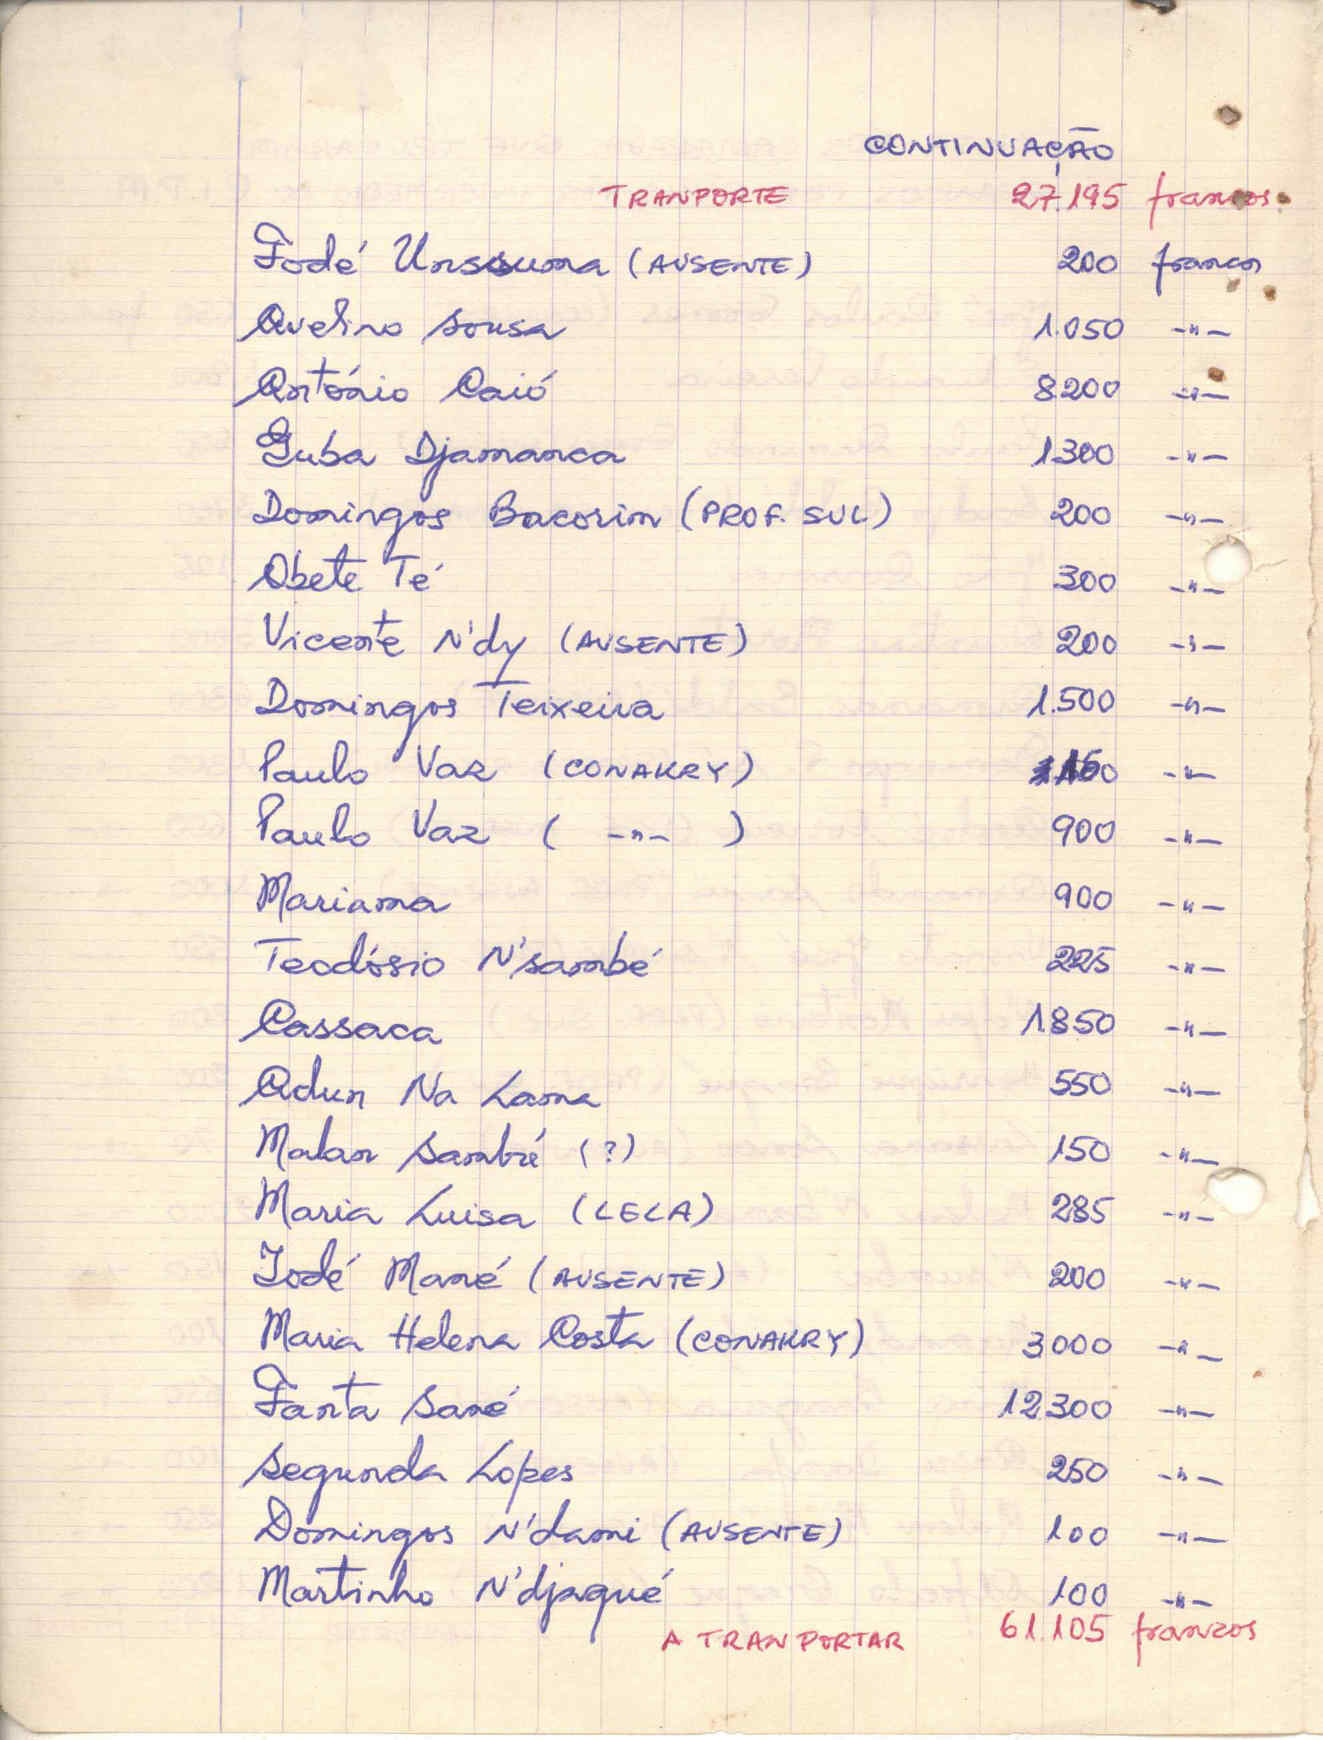 CONTINUAÇÃO
TRANPORTE 27.195 francos
Fodé Unssuma (AUSENTE) 200 francos
Avelino Sousa 1.050 -"-
António Caió 8.200 -"-
Guba Djamanca 1300 -"-
Domingos Bacorim (PROF. SUL) 200 -"-
Obete Té 300 -"-
Vicente N'dy (AUSENTE) 200 -"-
Domingos Teixeira 1.500 -"-
Paulo Vaz (CONAKRY) 150 -"-
Paulo Vaz ( -"- ) 900 -"-
Mariama 900 -"-
Teodósio N'sambé 225 -"-
Cassaca 1850 -"-
Adun Na Lama 550 -"-
Malan Sambé (?) 150 -"-
Maria Luisa (LELA) 285 -"-
Fodé Mané (AUSENTE) 200 -"-
Maria Helena Costa (CONAKRY) 3000 -"-
Fanta Sané 12.300 -"-
Segunda Lopes 250 -"-
Domingos N'dami (AUSENTE) 100 -"-
Martinho N'djaqué 100 -"-
A TRANPORTAR 61.105 francos